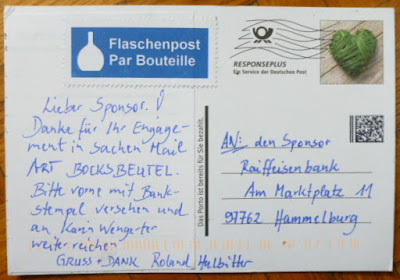 Flaschenpost
Par Bouteille
RESPONSEPLUS
Ein Service der Deutschen Post
Das Porto ist bereits für Sie bezahlt.
Lieber Sponsor!
Danke für Ihr Engage-
ment in Sachen Mail
ART BOCKSBEUTEL.
Bitte vorne mit Bank-
stempel versehen und
an Karin Wengerter
weiter reichen
GRUSS + DANK Roland Halbritter
AN: den Sponsor
Raiffeisenbank
Am Marktplatz 11
97762 Hammelburg